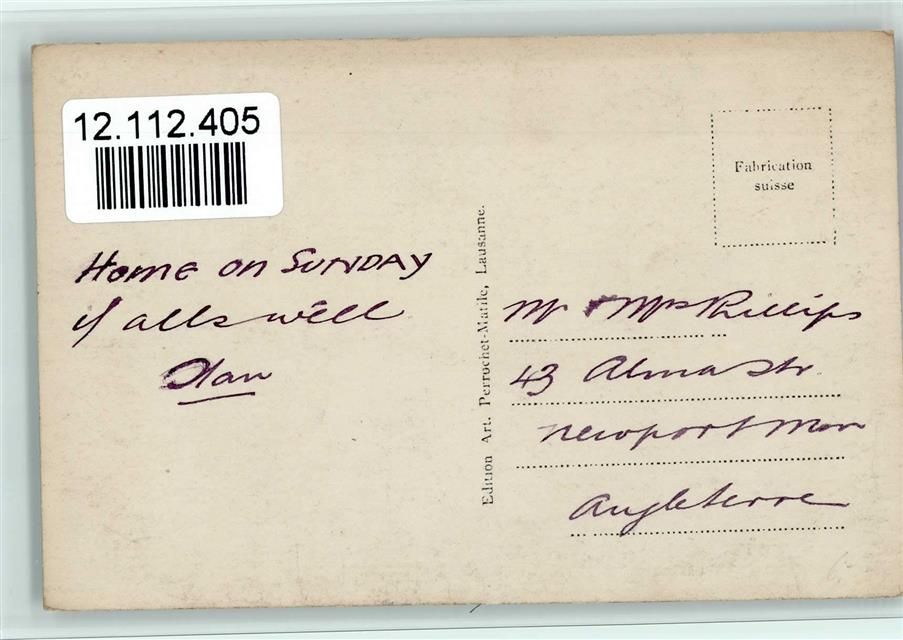 12.112.405
Fabrication
suisse
Home on SUNDAY
if alls well
Stan
Edition Art. Perrochet-Matile, Lausanne.
Mr & Mrs Phillips
43 Alma Str.
Newport Mon
Angleterre